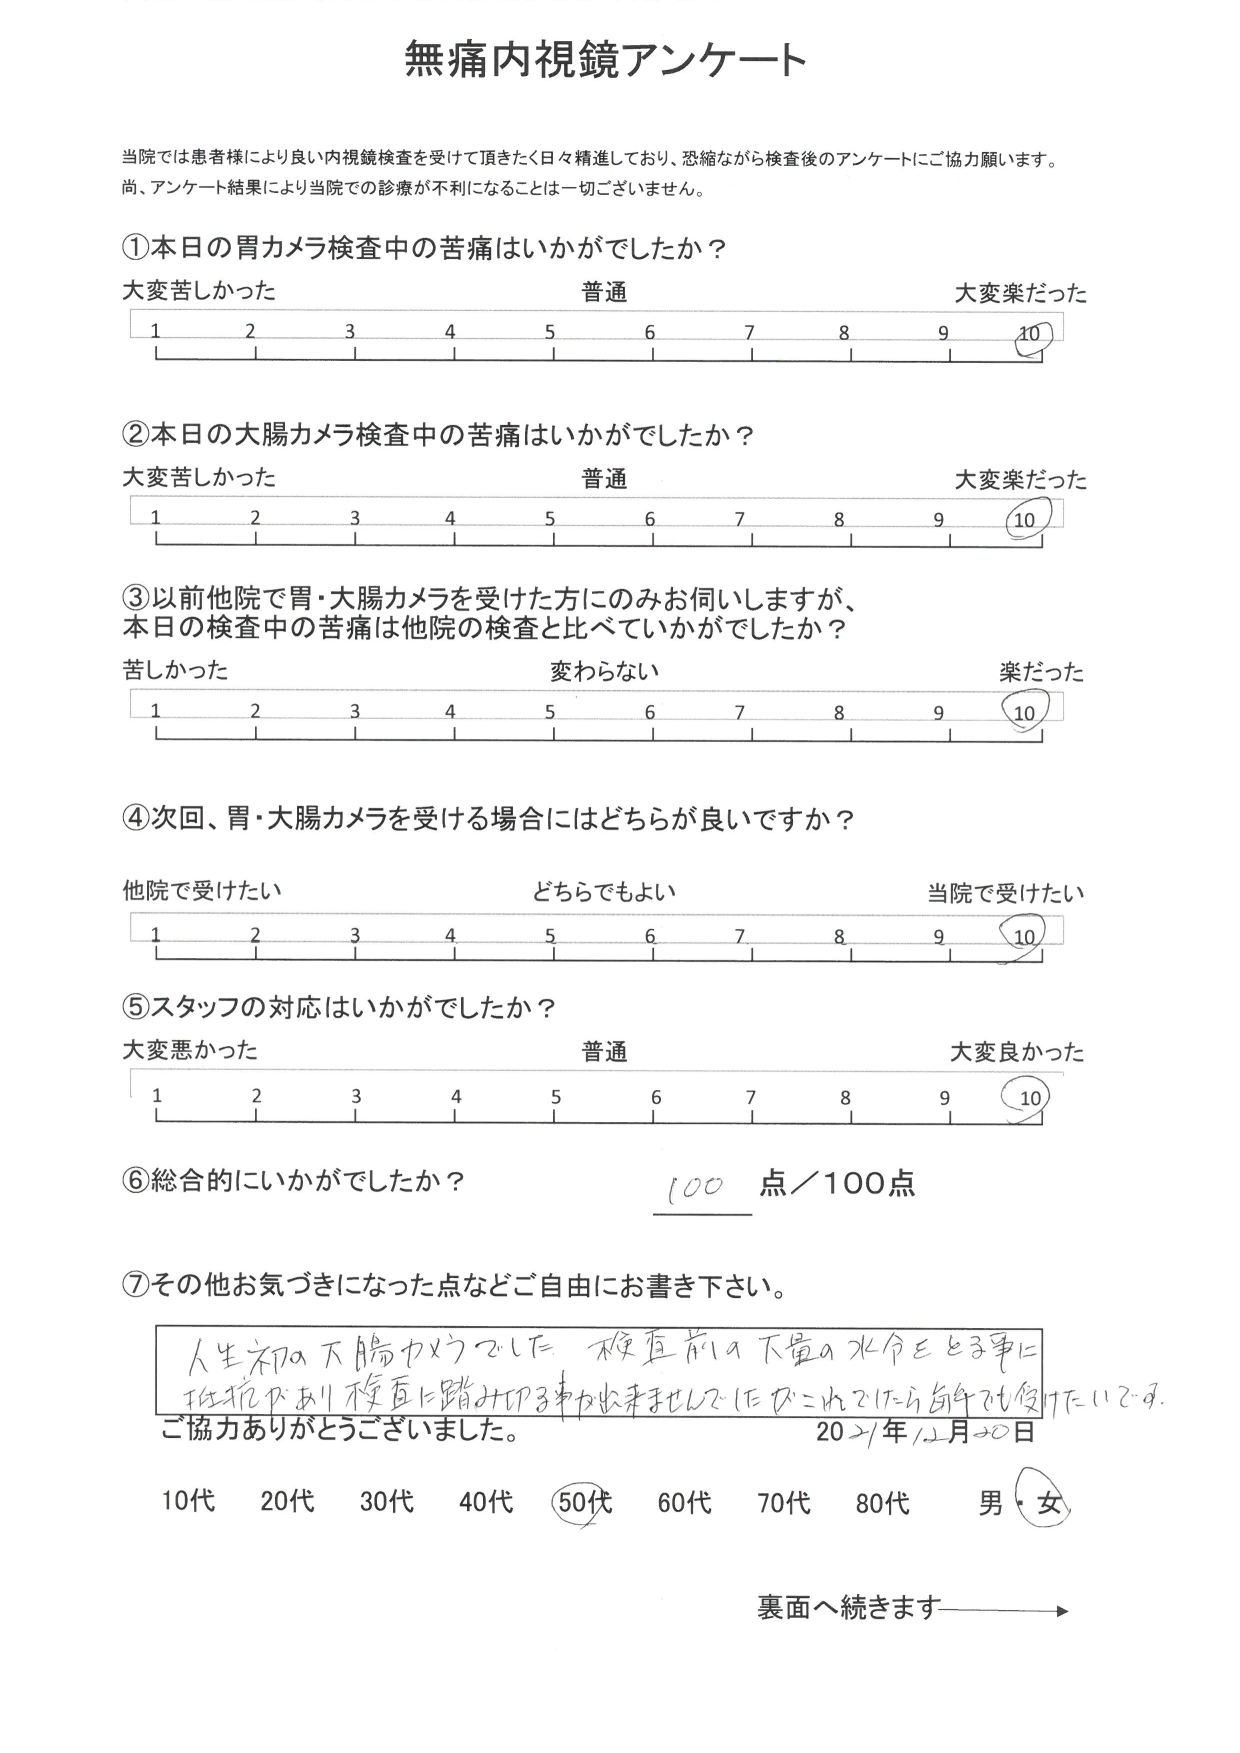 無痛内視鏡アンケート
当院では患者様により良い内視鏡検査を受けて頂きたく日々精進しており、恐縮ながら検査後のアンケートにご協力願います。
尚、アンケート結果により当院での診療が不利になることは一切ございません。
①本日の胃カメラ検査中の苦痛はいかがでしたか？
大変苦しかった 普通 大変楽だった
1 2 3 4 5 6 7 8 9 10
②本日の大腸カメラ検査中の苦痛はいかがでしたか？
大変苦しかった 普通 大変楽だった
1 2 3 4 5 6 7 8 9 10
③以前他院で胃・大腸カメラを受けた方にのみお伺いしますが、
本日の検査中の苦痛は他院の検査と比べていかがでしたか？
苦しかった 変わらない 楽だった
1 2 3 4 5 6 7 8 9 10
④次回、胃・大腸カメラを受ける場合にはどちらが良いですか？
他院で受けたい どちらでもよい 当院で受けたい
1 2 3 4 5 6 7 8 9 10
⑤スタッフの対応はいかがでしたか？
大変悪かった 普通 大変良かった
1 2 3 4 5 6 7 8 9 10
⑥総合的にいかがでしたか？ 100 点／100点
⑦その他お気づきになった点などご自由にお書き下さい。
人生初の大腸カメラでした 検査前の大量の水分をとる事に
抵抗があり検査に踏み切る事が出来ませんでしたがこれでしたら毎年でも受けたいです.
ご協力ありがとうございました。 2021年12月20日
10代 20代 30代 40代 50代 60代 70代 80代 男・女
裏面へ続きます